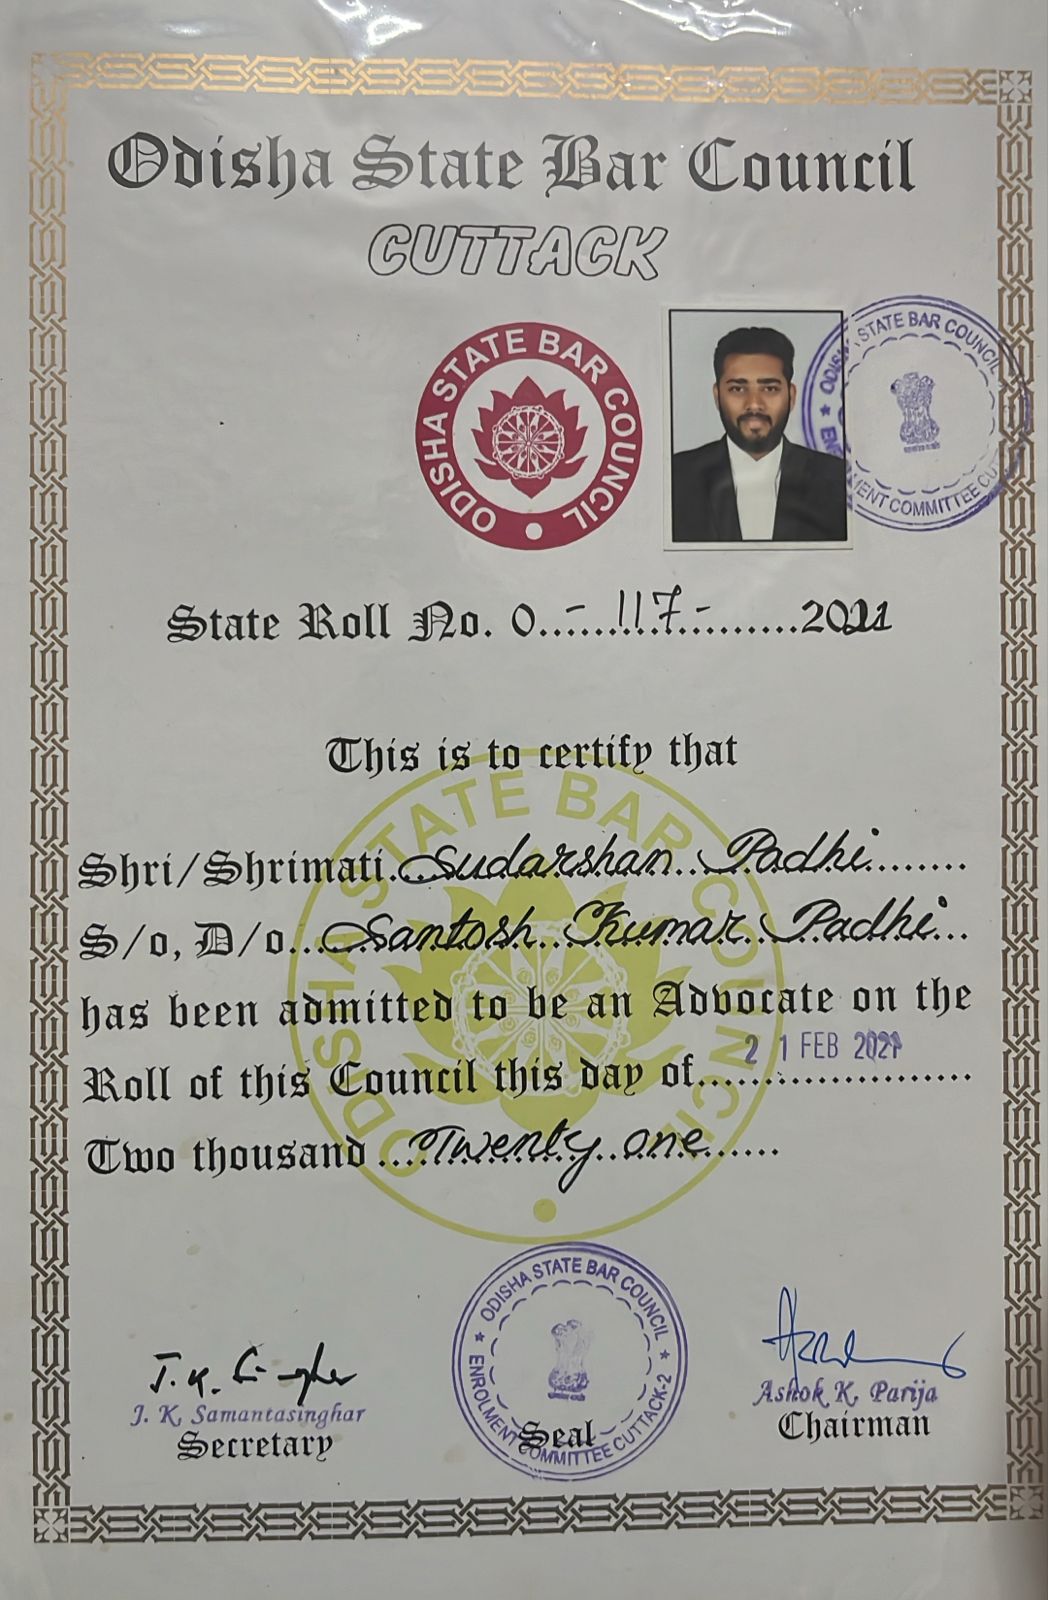 Odisha State Bar Council
CUTTACK
ODISHA STATE BAR COUNCIL
ODISHA STATE BAR COUNCIL
ENROLMENT COMMITTEE CU
State Roll No. O....- 117 -..........2021
This is to certify that
Shri/Shrimati. Sudarshan Padhi
S/o, D/o... Santosh Kumar Padhi...
has been admitted to be an Advocate on the
Roll of this Council this day of 21 FEB 2021
Two thousand ... Twenty one
ODISHA STATE BAR COUNCIL
ODISHA STATE BAR COUNCIL
ENROLMENT COMMITTEE CUTTACK-2
J. K. Samantasinghar
Secretary
Seal
Ashok K. Parija
Chairman